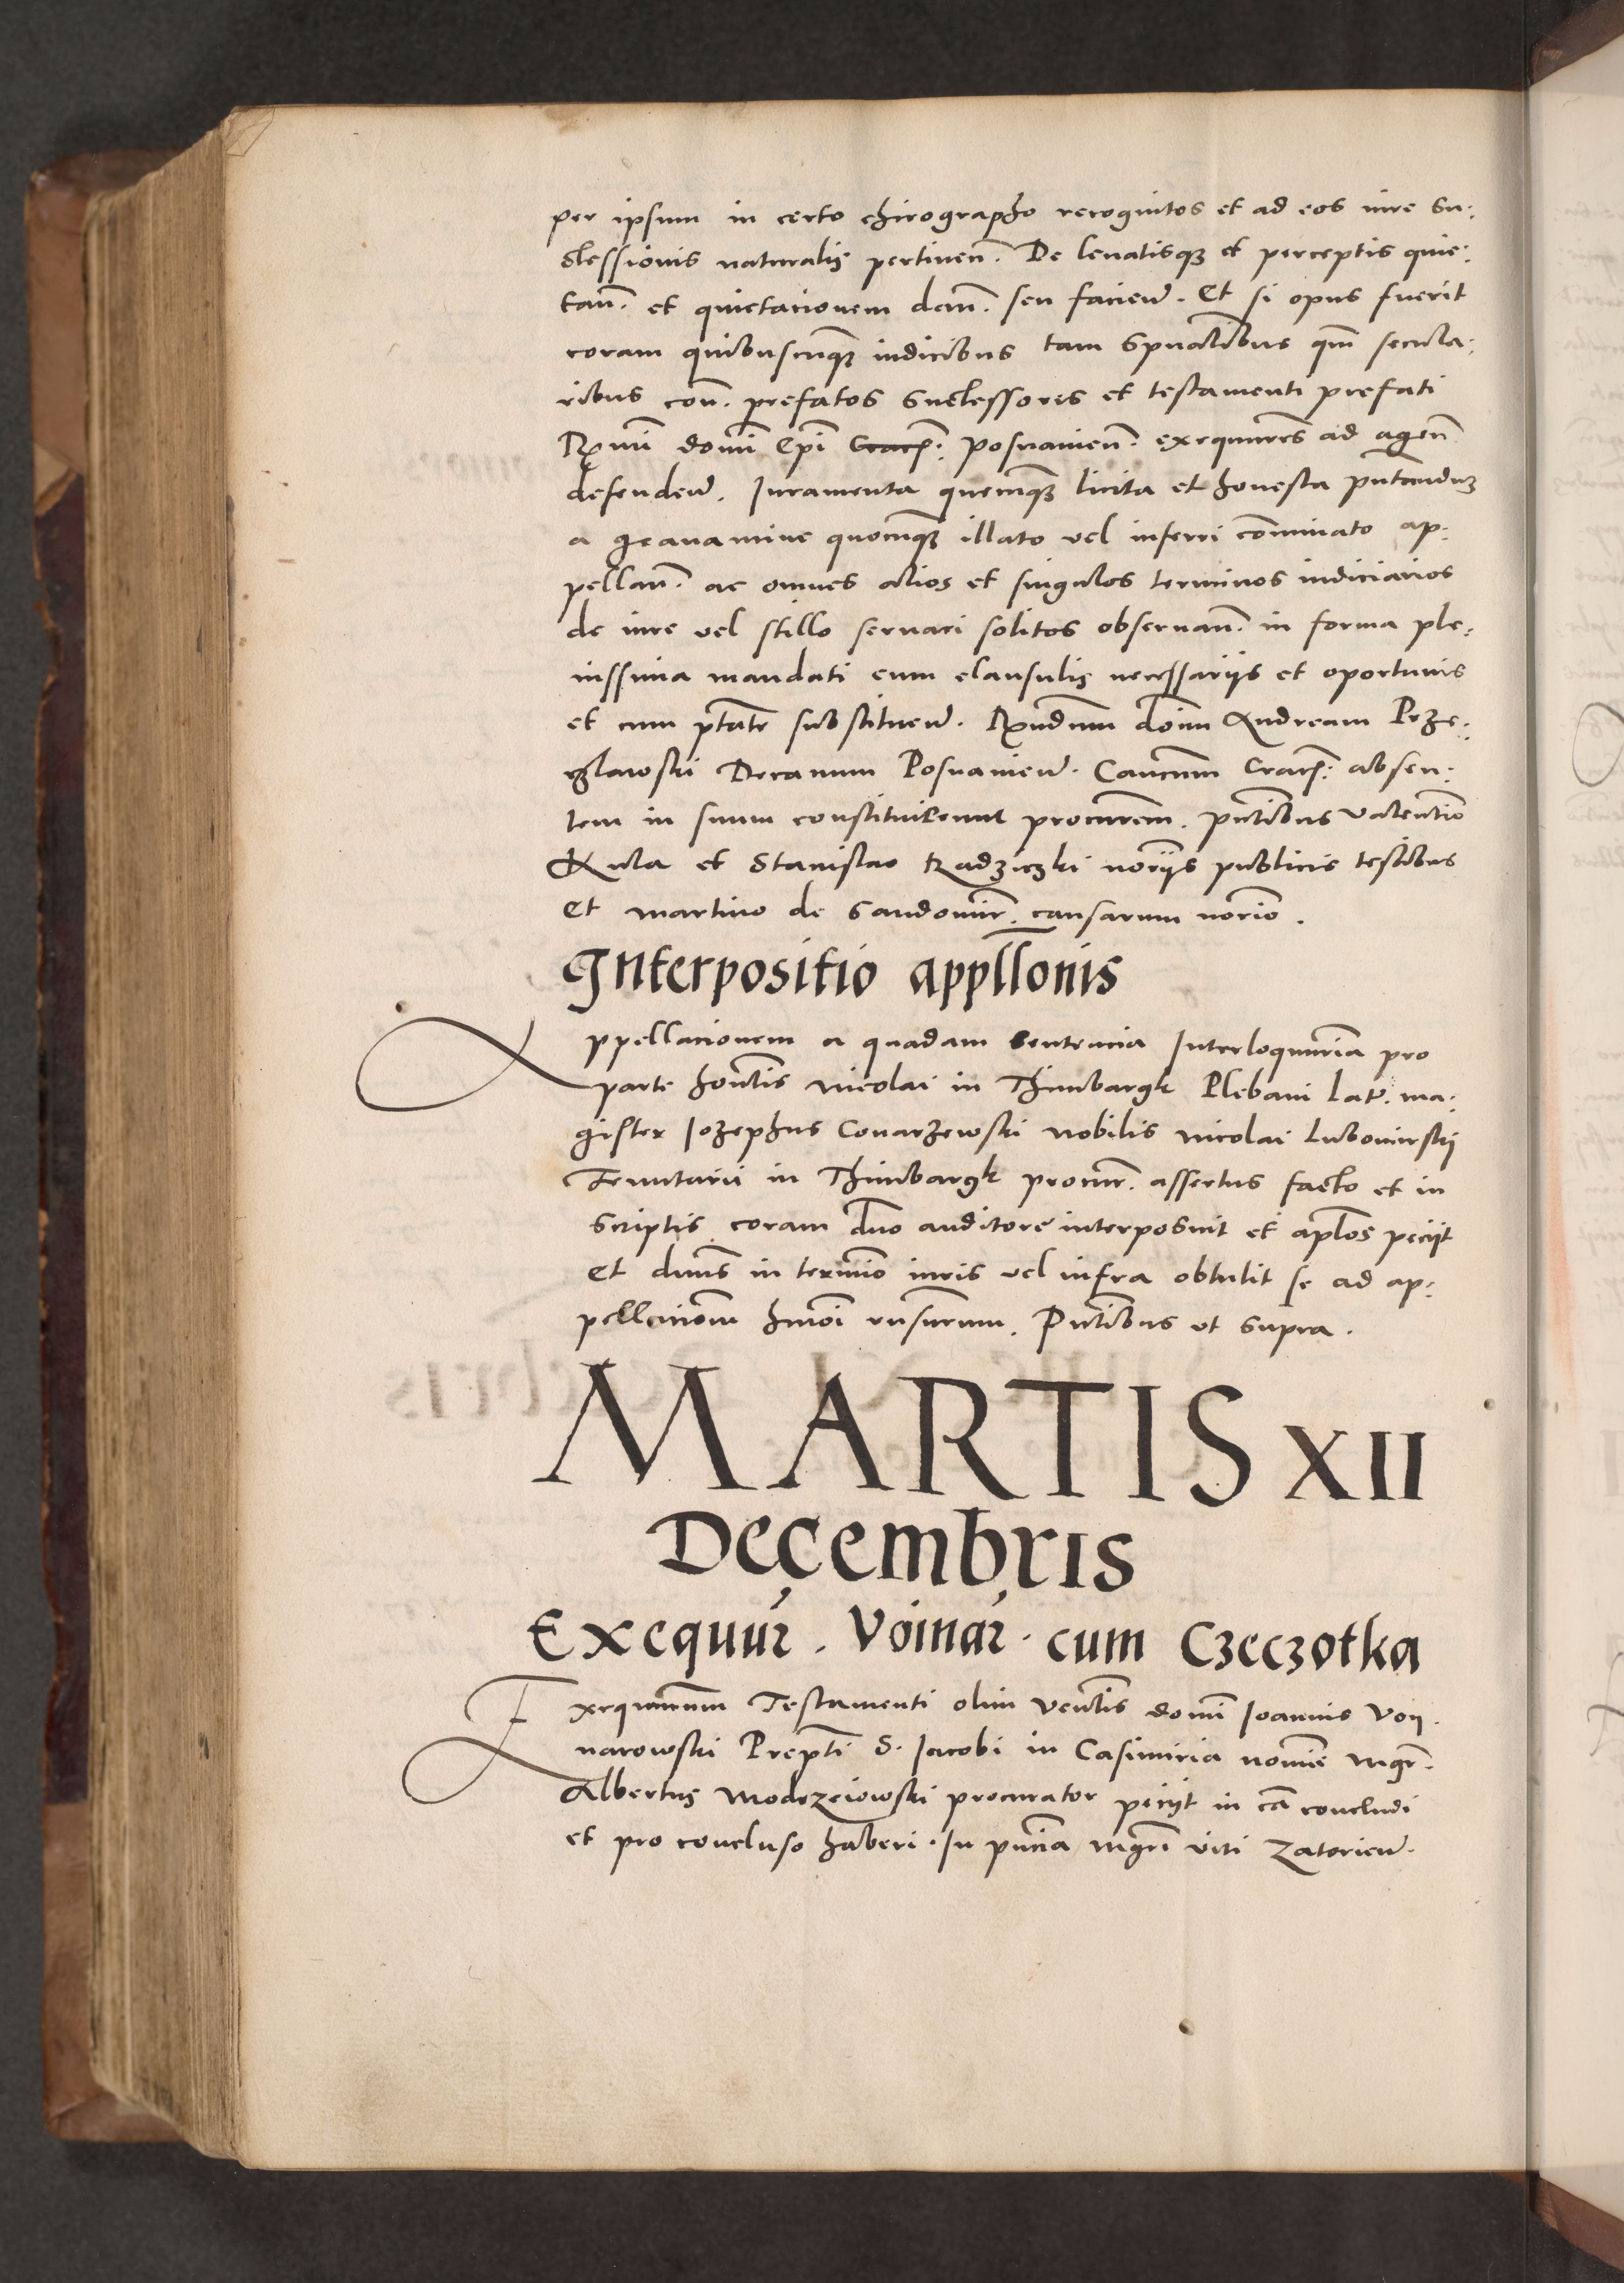 per ipsum in certo chirographo recognitos et ad eos iure su:
ccessionis naturalis pertinen̄. De leuatisqꝫ et perceptis quie:
tan̄. et quietacionem dan̄. seu facien̄. Et si opus fuerit
coram quibuscūqꝫ iudicibus tam spūalibus qm̄ secula:
ribus con̄. prefatos successores et testamenti prefati
Rmi domī Epī Crac̄. posnanien̄. exequutores ad agen̄
defenden̄. Iuramenta quecūqꝫ licita et honesta pn̄tanduꝫ
a grauamine quocūqꝫ illato vel inferri com̄inato ap:
pellan̄. ac omnes alios et singulos terminos iudiciarios
de iure vel stillo seruari solitos obseruan̄. in forma ple:
nissima mandati cum clausulis necessariis et oportunis
et cum ptāte substituen̄. Rn̄dum dom̄ Andream Prze:
czlawski Decanum Posnanien̄. Cancum Crac̄: absen:
tem in suum constituerunt procūrem. pn̄tibus valentio
Kula et Stanislao Radziczki nor̄iis publicis testibus
Et martino de Sandomir̄. causarum nōrio.
Interpositio app̄llonis
Appellacionem a quadam sentencia Interloquur̄ia pro
parte hon̄tis nicolai in Thimbargk Plebani lat̄. ma:
gister Iozephus Conarzewski nobilis nicolai Lubomirskij
Tenutarii in Thimbargk procur̄. assertus facto et in
scriptis coram dn̄o auditore interposuit et ap̄los peciit
et dum̄s in termīo iuris vel infra obtulit se ad ap:
pellacionem hmōi rn̄surum. Pn̄tibus vt supra.
MARTIS XII
Decembris
Exequur̄. Voinar̄. cum Czeczotka
Exequutorum Testamenti olim ven̄tis domī Ioannis Voy
narowski Prepti S. Jacobi in Casimiria nomīe mgr̄.
Albertus Modrzeiowski procurator peciit in cā concludi
et pro concluso haberi. In pn̄cia mgr̄i viti Zatorien̄.